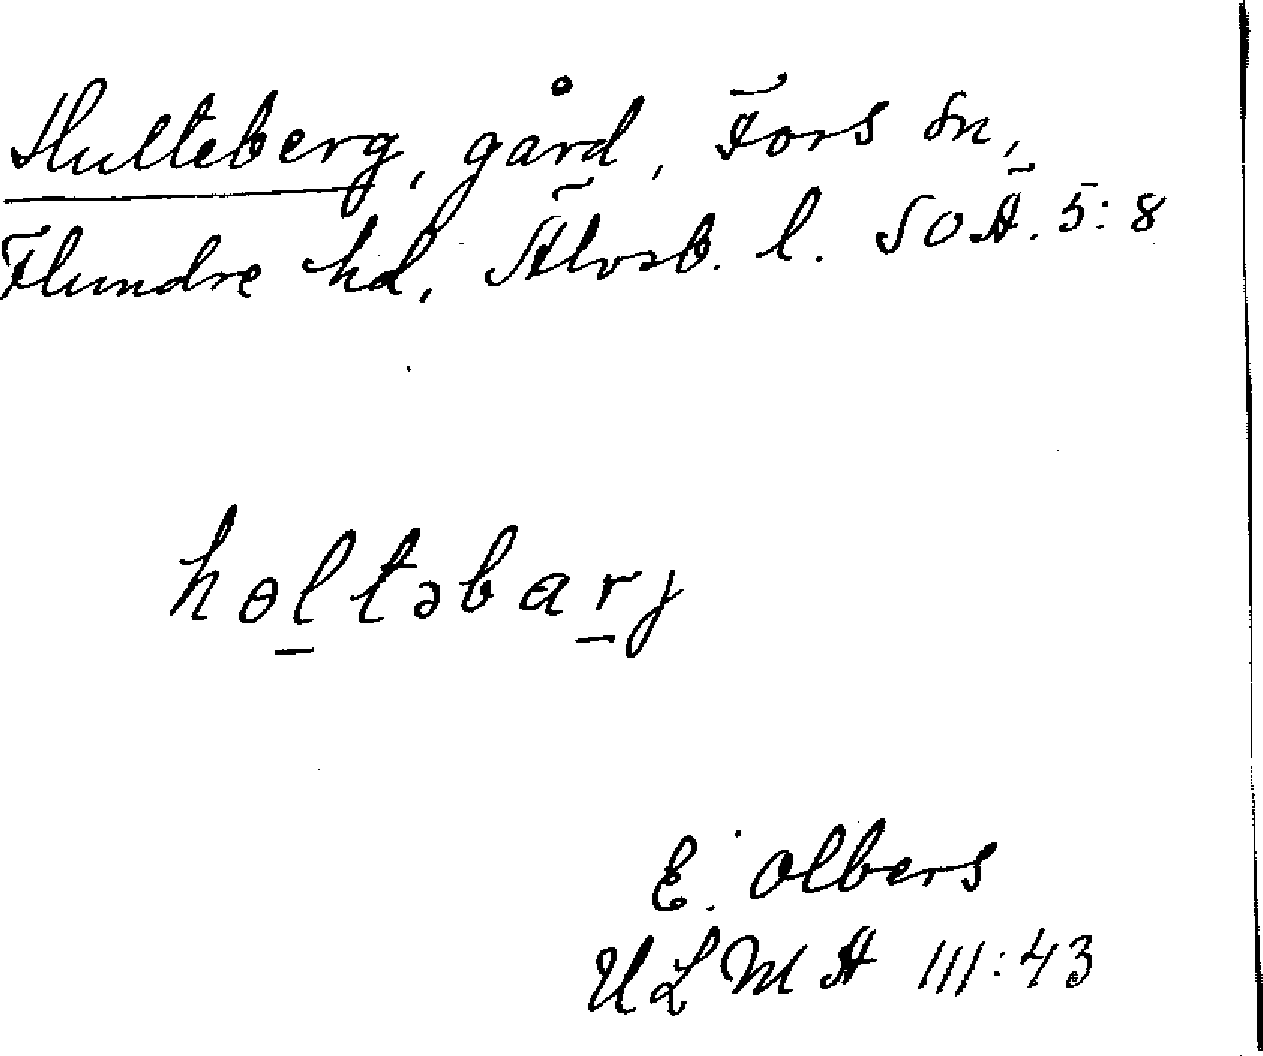 Hulteberg, gård, Fors sn,
Flundre hd, Älvsb. l. SOÄ. 5:8
hɵl̠təbar̠j
E. Olbers
ULMA 111:43